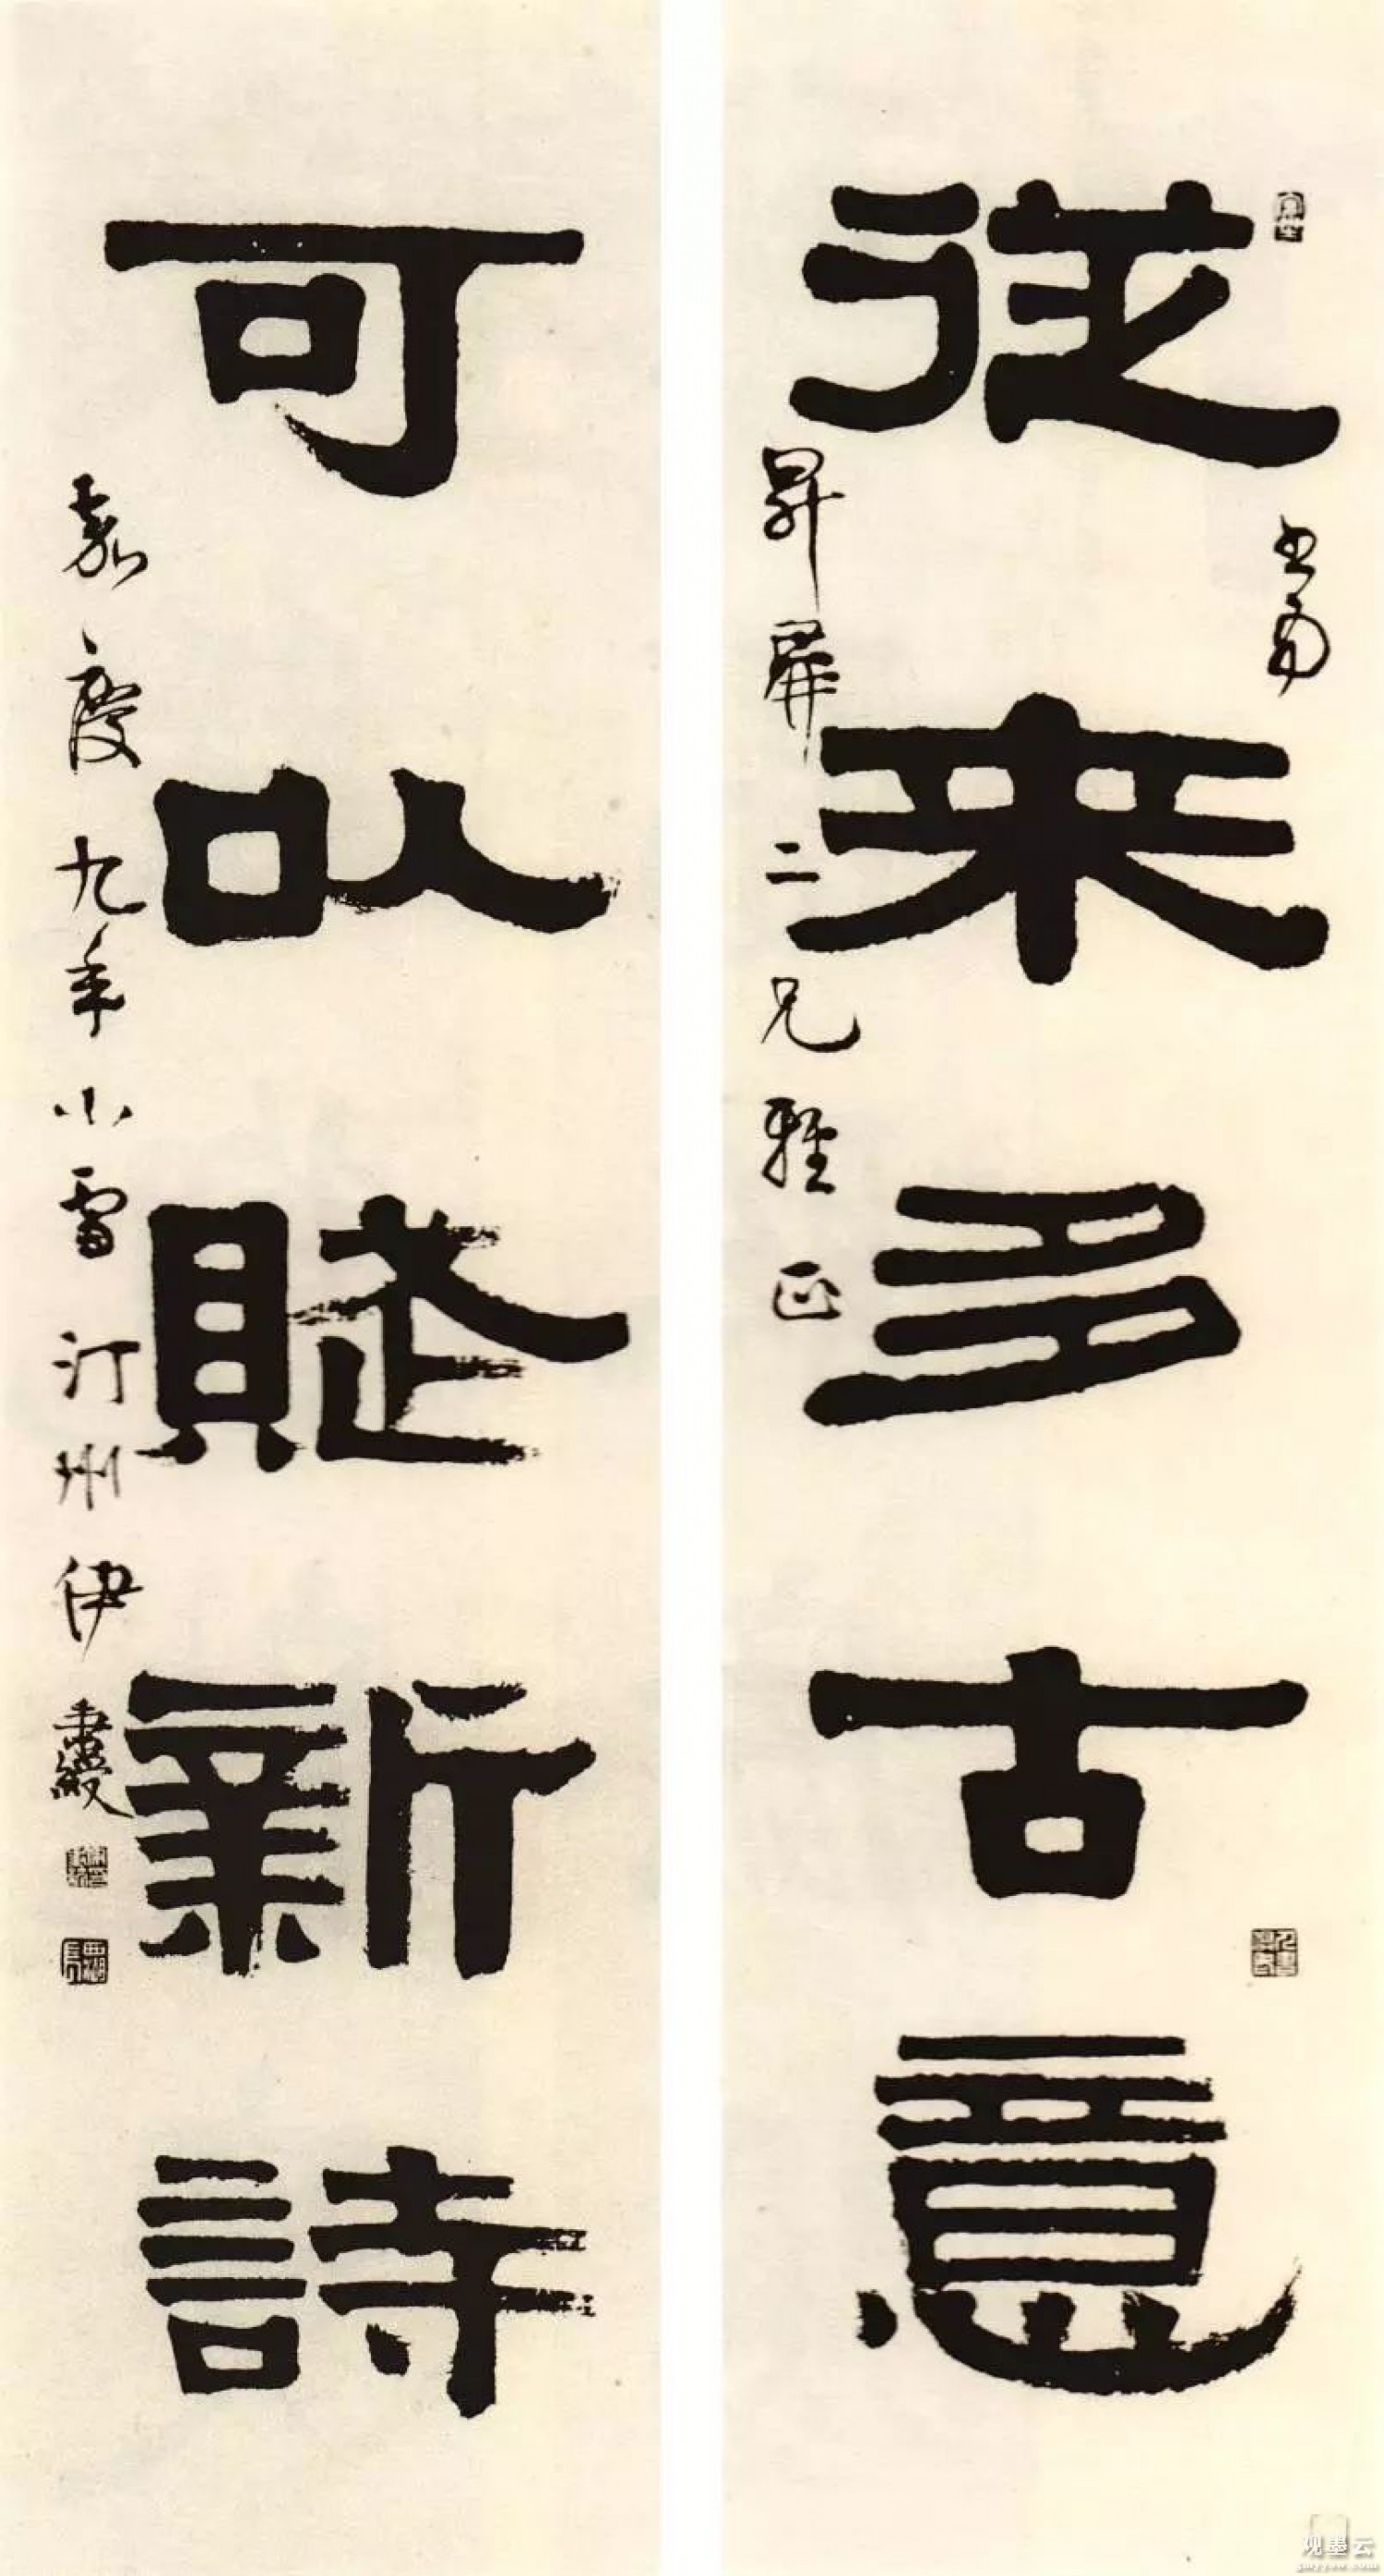 書為
從来多古意
昇屏二兄雅正
可以賦新詩
嘉慶九年小雪汀州伊秉綬
观墨云